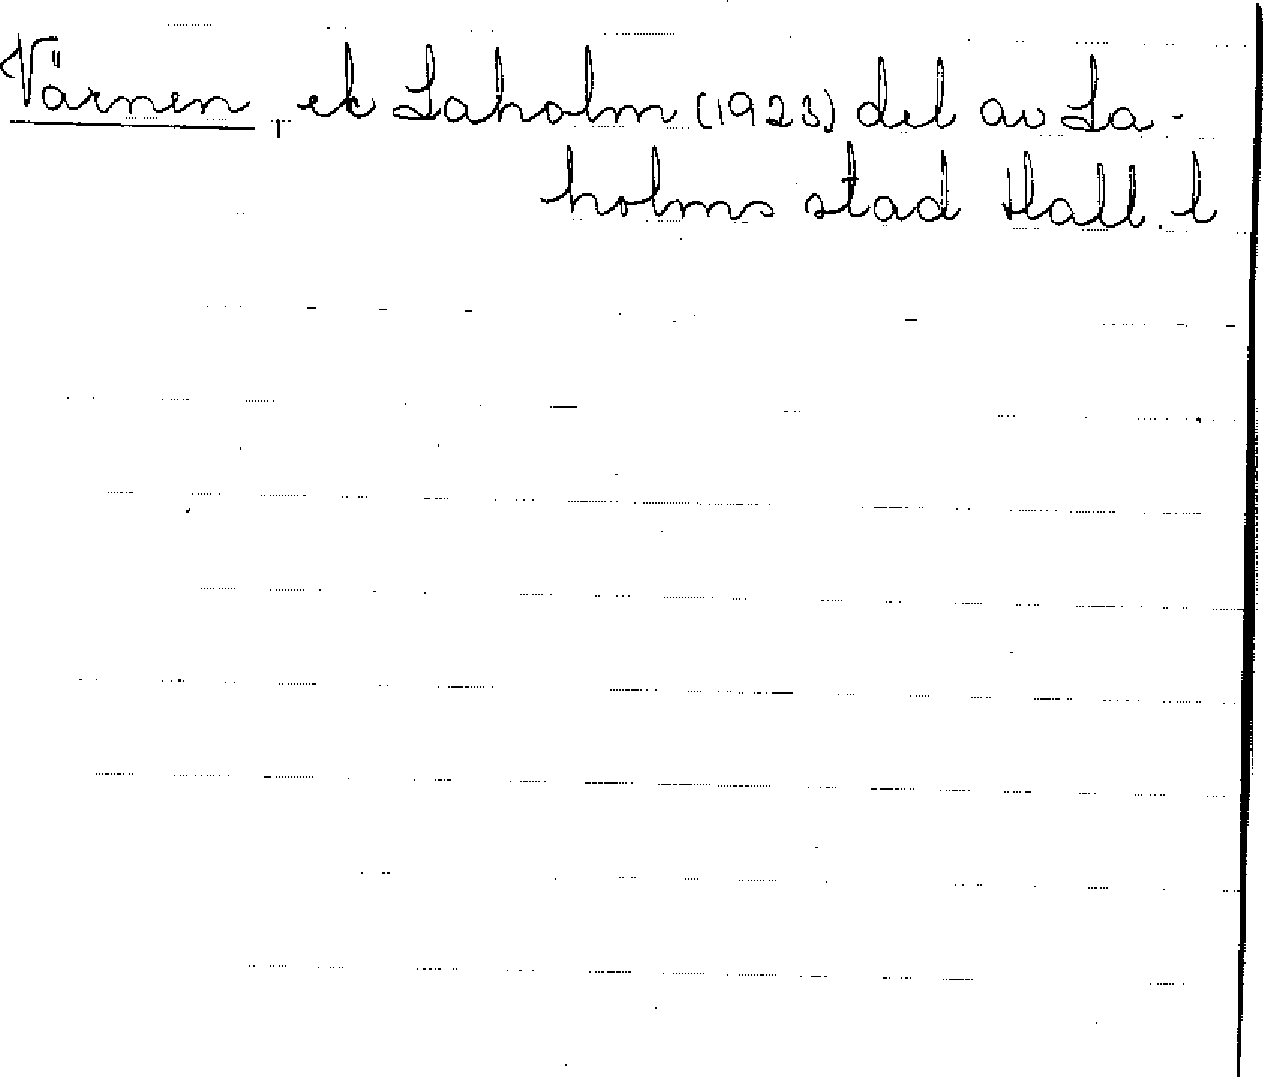 Värnen, ek Laholm (1923) del av La-
holms stad Hall. l